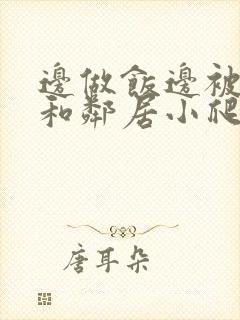 邊做飯邊被
和鄰居小爬
唐耳朵